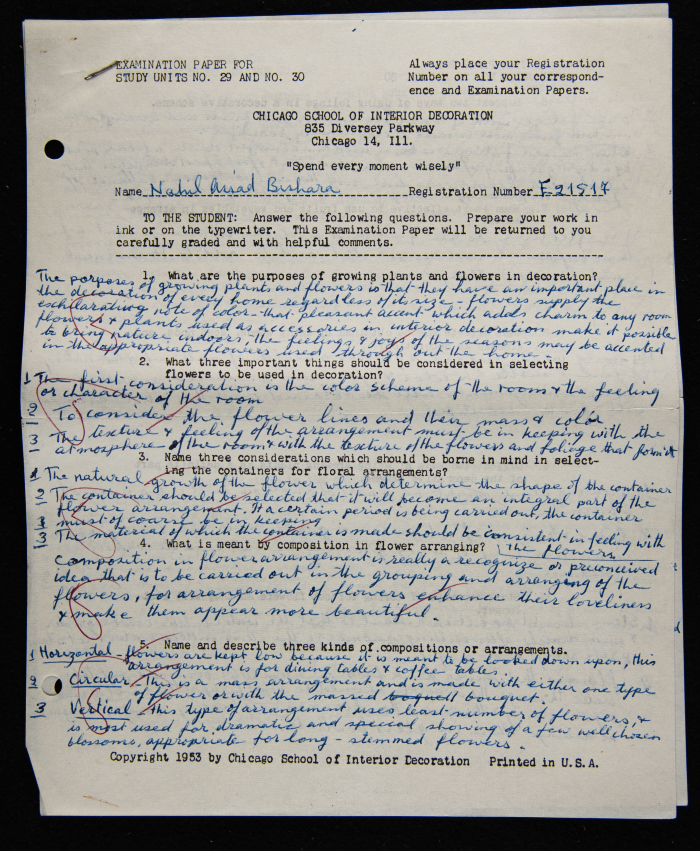 EXAMINATION PAPER FOR
STUDY UNITS NO. 29 AND NO. 30
Always place your Registration
Number on all your correspond-
ence and Examination Papers.
CHICAGO SCHOOL OF INTERIOR DECORATION
835 Diversey Parkway
Chicago 14, Ill.
"Spend every moment wisely"
Name Nabil Assad Bishara Registration Number E21517
TO THE STUDENT: Answer the following questions. Prepare your work in
ink or on the typewriter. This Examination Paper will be returned to you
carefully graded and with helpful comments.
1. What are the purposes of growing plants and flowers in decoration?
The porposes of growing plants and flowers is that they have an important place in
the decoration of every home regardless of its size - flowers supply the
exhilarating note of color - that pleasant accent which adds charm to any room
flowers & plants used as accessories in interior decoration make it possible
to bring nature indoors, the feelings & joy of the seasons may be accented
in the appropriate flowers used through out the home.
2. What three important things should be considered in selecting
flowers to be used in decoration?
1 The first consideration is the color scheme of the room & the feeling
or character of the room
2 To consider the flower lines and their mass & color
3 The texture & feeling of the arrangement must be in keeping with the
atmosphere of the room & with the texture of the flowers and foliage that form it
3. Name three considerations which should be borne in mind in select-
ing the containers for floral arrangements?
1 The natural growth of the flower which determine the shape of the container
2 The container should be selected that it will become an integral part of the
flower arrangement. If a certain period is being carried out, the container
must of course be in keeping
3 The material of which the container is made should be consistent in feeling with
the flowers
4. What is meant by composition in flower arranging?
Composition in flower arrangement is really a recognize or preconceived
idea that is to be carried out in the grouping and arranging of the
flowers, for arrangement of flowers enhance their loveliness
& make them appear more beautiful.
5. Name and describe three kinds of compositions or arrangements.
1 Horizontal - flowers are kept low because it is meant to be looked down upon, this
arrangement is for dining tables & coffee tables.
2 Circular - This is a mass arrangement and is made with either one type
of flower or with the massed bouquet.
3 Vertical - This type of arrangement uses least number of flowers, &
is most used for dramatic and special showing of a few well chosen
blossoms, appropriate for long - stemmed flowers.
Copyright 1953 by Chicago School of Interior Decoration Printed in U.S.A.